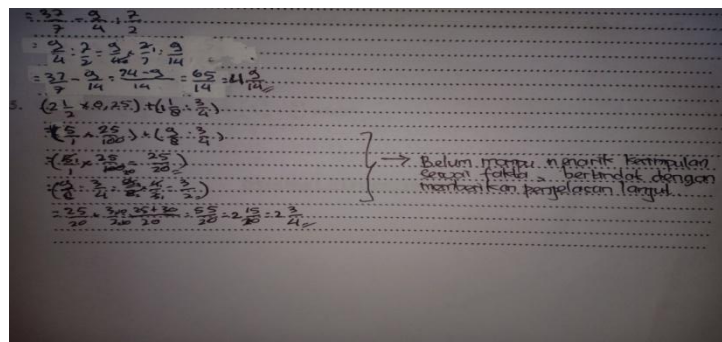 = 37/7 - 9/4 : 7/2
= 9/4 : 7/2 = 9/4 × 2/7 = 9/14
= 37/7 - 9/14 = 74-9/14 = 65/14 = 4 9/14
5. (2 1/2 × 0,25) + (1 1/8 : 3/4)
= (5/1 × 25/100) + (9/8 : 3/4)
= (5/1 × 25/100 = 25/20)
= (9/8 : 3/4 = 3/2)
= 25/20 + 25+30/20 = 55/20 = 2 15/20 = 2 3/4
→ Belum mampu menarik kesimpulan
sesuai fakta, bertindak dengan
memberikan penjelasan lanjut.